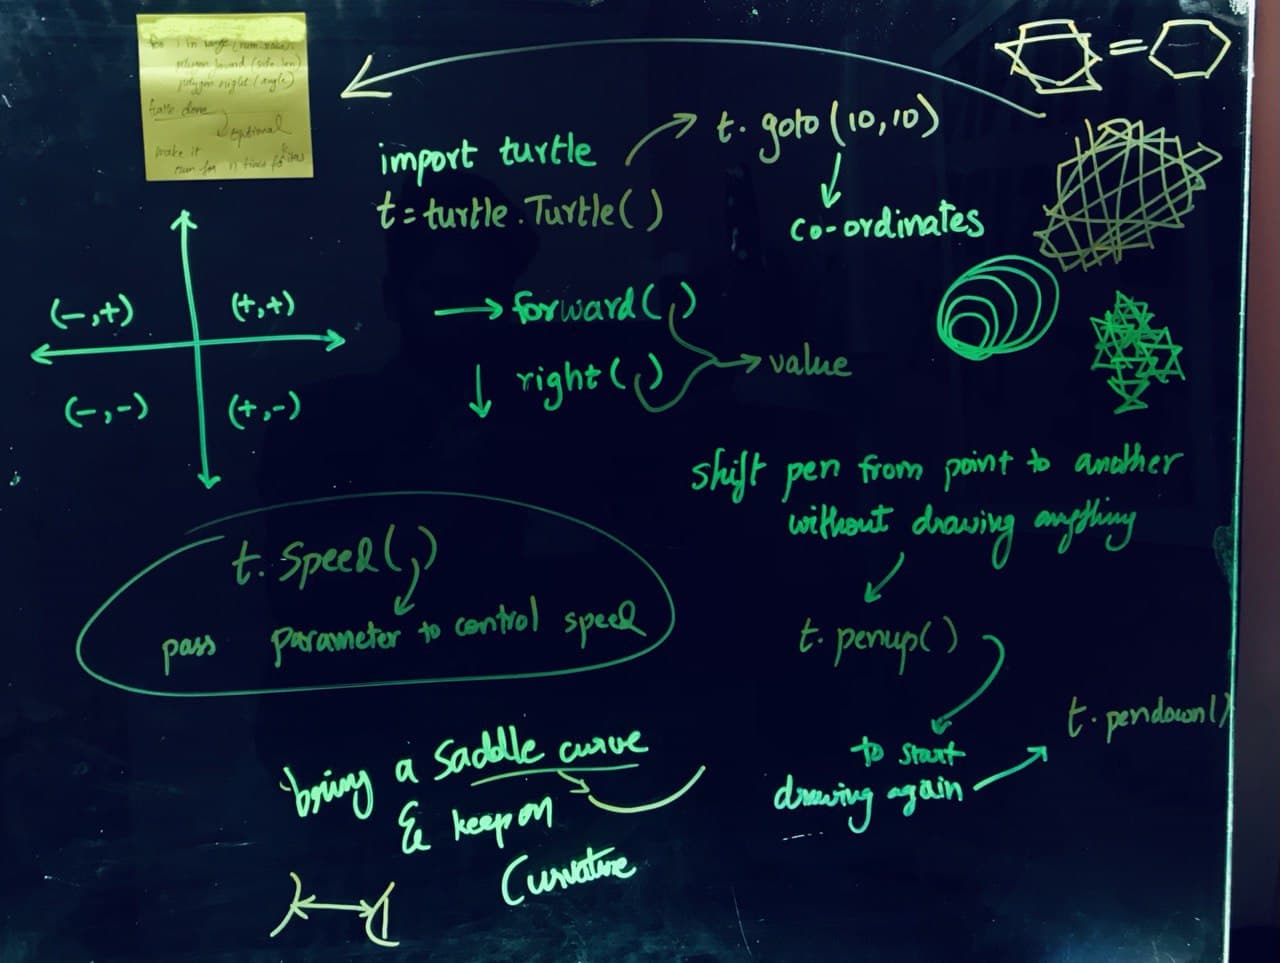 for i in range(num_sides):
polygon.forward(side_len)
polygon.right(angle)
turtle.done
optional
make it
run for n times for
import turtle
t=turtle.Turtle()
t.goto(10,10)
co-ordinates
=
(-,+)
(+,+)
(-,-)
(+,-)
forward( )
right( )
value
shift pen from point to another
without drawing anything
t.penup( )
to start
drawing again
t.pendown()
t.speed( )
pass parameter to control speed
bring a saddle curve
& keep on
Curvature